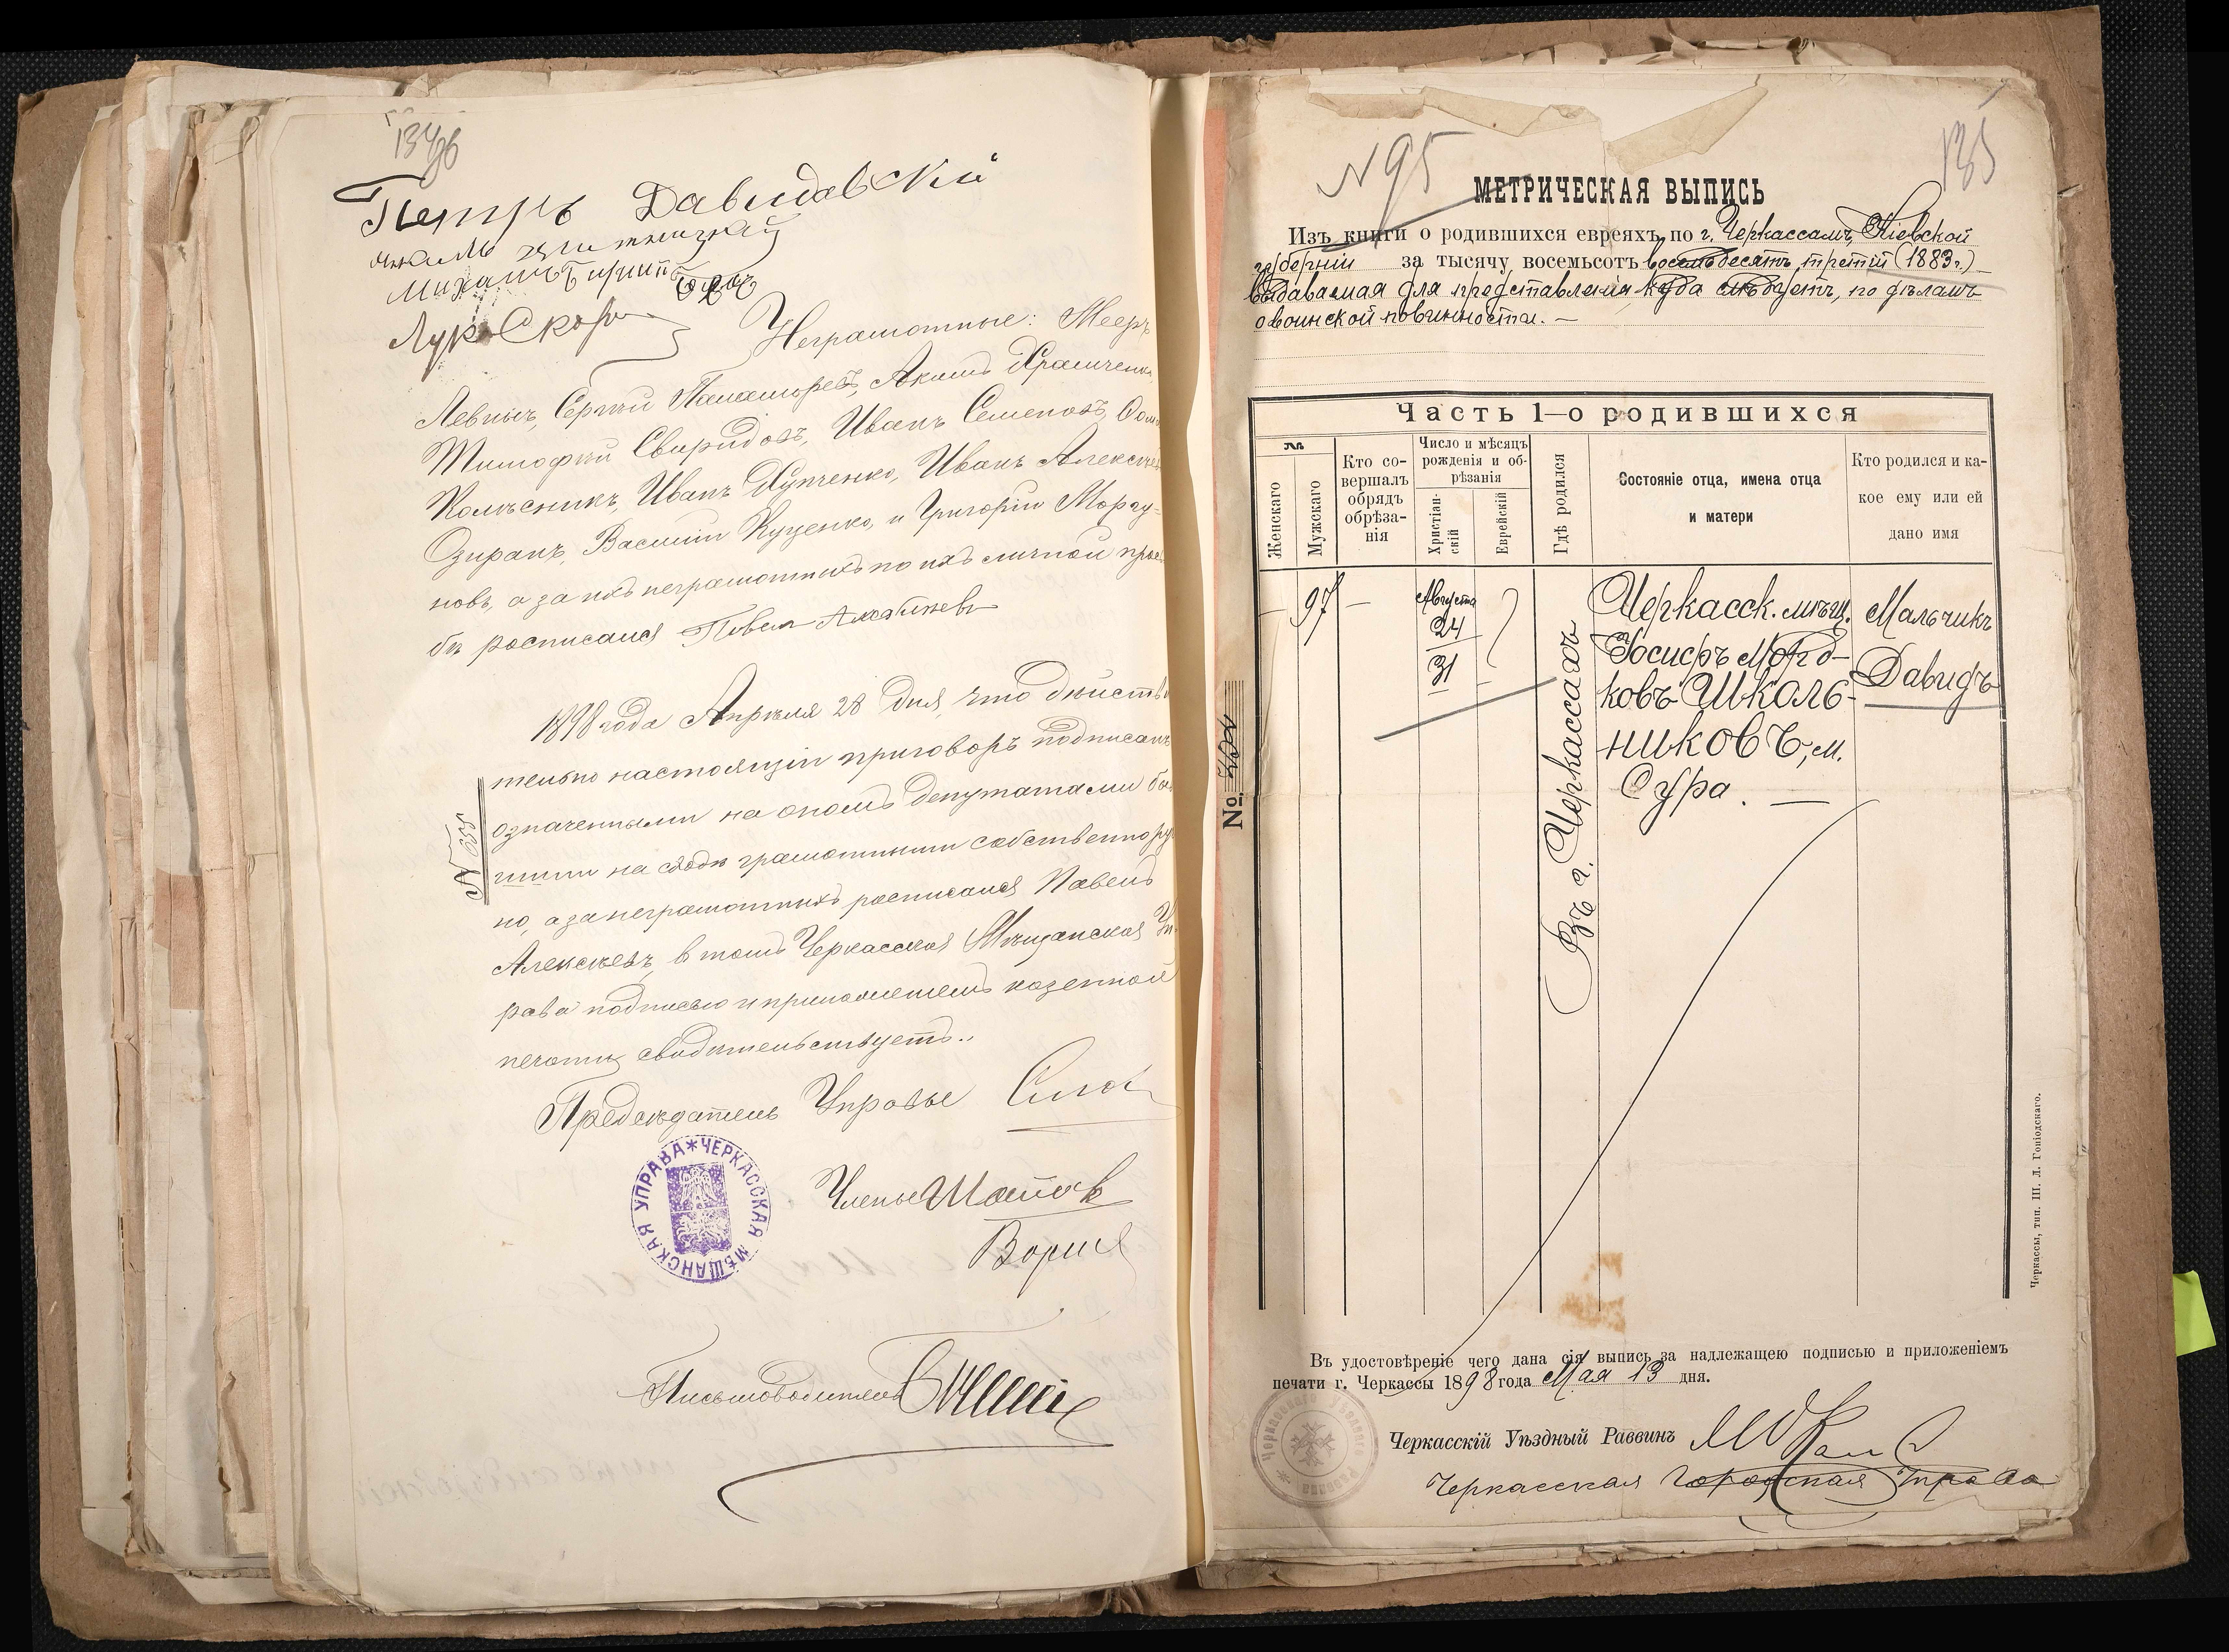 Петръ Давидовскій
Неграмотные: Мееръ
Левныъ, Сергѣй Паламоревъ, Акимъ Храмченко,
Тимофѣй Свиридовъ, Иванъ Семеновъ,
Колѣсникъ, Иванъ Купченко, Иванъ Алексѣев
Озиранъ, Василій Куценко, и Григорій Моргу-
новъ, а за ихъ неграмотныхъ по ихъ личной прось
бѣ росписался Павелъ Алексѣевъ
1898 года Апрѣля 28 дня, что дѣйстви
тельно настоящій приговоръ подписанъ
означенными на ономъ депутатами быв
шими на сходѣ грамотными собственнору
но, а за неграмотныхъ росписался Павелъ
Алексѣевъ, в томъ Черкасская Мѣщанская Уп
рава подписью и приложеніемъ казенной
печати свидѣтельствуетъ..
№ 255
Предсѣдатель Управы
Члены
Письмоводитель
ЧЕРКАССКАЯ МѢЩАНСКАЯ УПРАВА
№ 95
135
МЕТРИЧЕСКАЯ ВЫПИСЬ
Изъ книги о родившихся евреяхъ по г. Черкассамъ, Кіевской
губерніи за тысячу восемьсотъ восемьдесятъ третій (1883 г.)
выдаваемая для представленія, куда слѣдуетъ, по дѣламъ
о воинской повинности. —
Часть 1—о родившихся
№
Женскаго
Мужскаго
Кто со-
вершалъ
обрядъ
обрѣза-
нія
Число и мѣсяцъ
рожденія и об-
рѣзанія
Христіан-
скій
Еврейскій
Гдѣ родился
Состояніе отца, имена отца
и матери
Кто родился и ка-
кое ему или ей
дано имя
— 97 —
Августа
24
31
Въ г. Черкассахъ
Черкасск. мѣщ.
Іосифъ Морд-
ковъ Школь-
никовъ, м.
Сура. —
Мальчикъ
Давидъ
№
Черкассы, тип. Ш. Л. Гоніодскаго.
Въ удостовѣреніе чего дана сія выпись за надлежащею подписью и приложеніемъ
печати г. Черкассы 1898 года Мая 13 дня.
Черкасскій Уѣздный Раввинъ
Черкасская Городская Управа